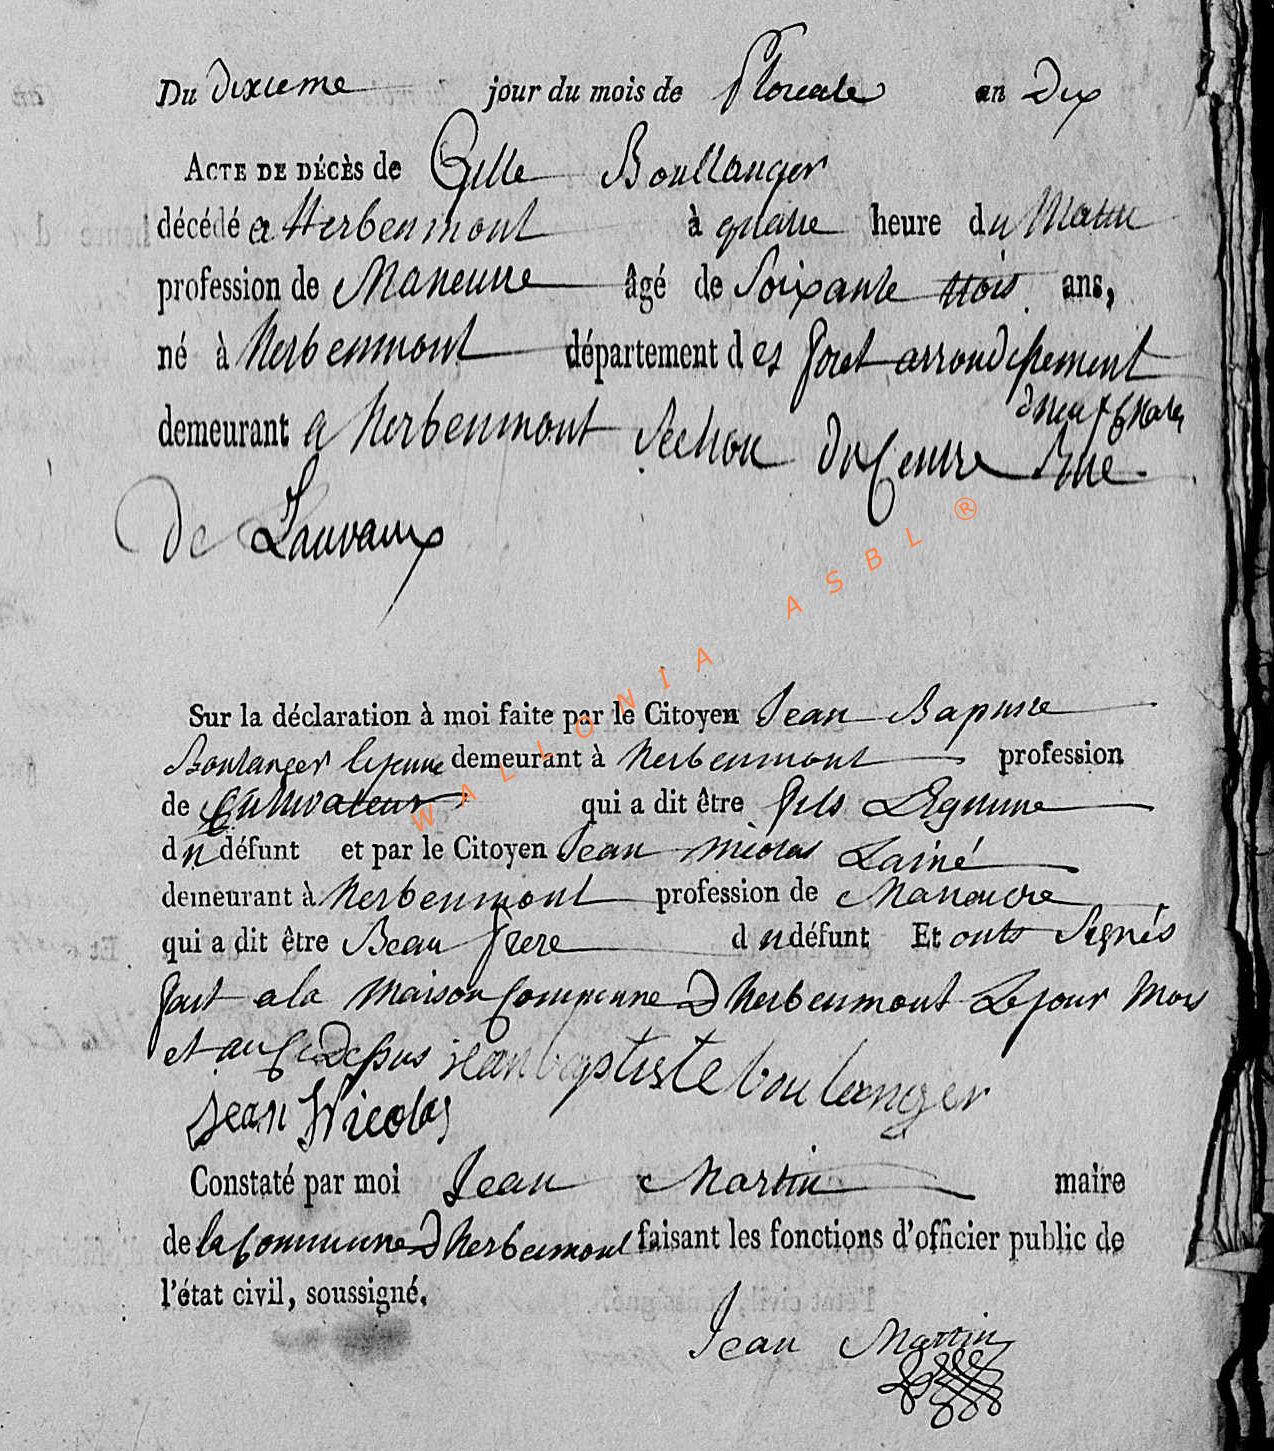 Du dixieme jour du mois de floreale an Dix
ACTE DE DÉCÈS de Gille Boullanger
décédé a Herbeumont à quatre heure du Matin
profession de Maneuvre âgé de Soixante trois ans,
né à herbeumont département des foret arrondissement
dneufchatea
demeurant a herbeumont Section du Centre Rue
de Lauvaux
Sur la déclaration à moi faite par le Citoyen Jean Baptiste
Boulanger lejeune demeurant à herbeumont profession
de Cultivateur qui a dit être fils Legitime
du défunt et par le Citoyen Jean nicolas Lainé
demeurant à herbeumont profession de Manouvre
qui a dit être Beau frere du défunt Et onts Signés
fait a la Maison Commune D herbeumont Le jour Mois
et an Ci Dessus jean baptiste boulanger
jean Nicolas
Constaté par moi Jean Martin maire
de la Commune D herbeumont faisant les fonctions d'officier public de
l'état civil, soussigné.
Jean Martin
WALLONIA ASBL ®